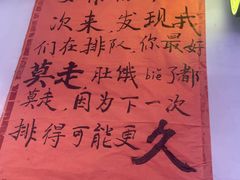 次来发现我
们在排队,你最好
莫走,肚饿bie了都
莫走,因为下一次
排得可能更久